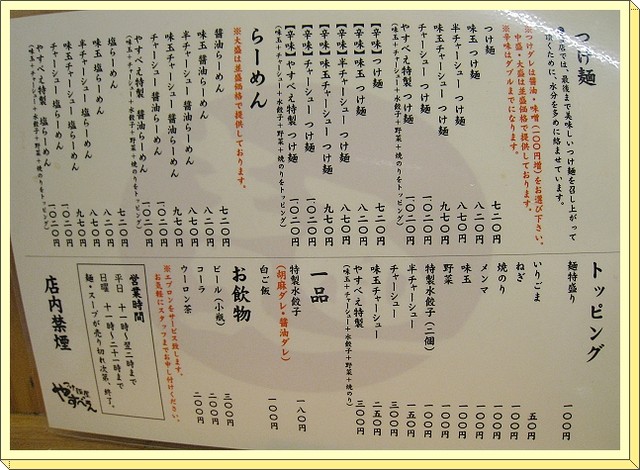 つけ麺
当店では、最後まで美味しいつけ麺を召し上がって
頂くために、水分を多めに絡ませています。
※つけダレは醤油・味噌(100円増)をお選び下さい。
※中盛・大盛は並盛価格で提供しております。
※辛味はダブルまでになります。
つけ麺 七二〇円
味玉 つけ麺 八二〇円
半チャーシュー つけ麺 八七〇円
チャーシュー つけ麺
味玉チャーシュー つけ麺
やすべえ特製 つけ麺 一〇二〇円
(味玉+チャーシュー+水餃子+野菜+焼のりをトッピング)
【辛味】つけ麺 七二〇円
【辛味】味玉 つけ麺 八二〇円
【辛味】半チャーシュー つけ麺 八七〇円
【辛味】チャーシュー つけ麺 九七〇円
【辛味】味玉チャーシュー つけ麺
【辛味】やすべえ特製 つけ麺
(味玉+チャーシュー+水餃子+野菜+焼のりをトッピング)
らーめん
※大盛は並盛価格で提供しております。
醤油らーめん 七二〇円
味玉 醤油らーめん 八二〇円
半チャーシュー 醤油らーめん 八七〇円
チャーシュー 醤油らーめん 九七〇円
味玉チャーシュー 醤油らーめん
やすべえ特製 醤油らーめん
(味玉+チャーシュー+水餃子+野菜+焼のりをトッピング)
塩らーめん 七二〇円
味玉 塩らーめん 八二〇円
半チャーシュー 塩らーめん 八七〇円
チャーシュー 塩らーめん 九七〇円
味玉チャーシュー 塩らーめん
やすべえ特製 塩らーめん 一〇二〇円
(味玉+チャーシュー+水餃子+野菜+焼のりをトッピング)
トッピング
麺特盛り 一〇〇円
いりごま 五〇円
ねぎ 一〇〇円
焼のり 一〇〇円
メンマ 一〇〇円
味玉 一〇〇円
野菜 一〇〇円
特製水餃子(二個) 一〇〇円
半チャーシュー 一五〇円
チャーシュー 三〇〇円
味玉チャーシュー 二五〇円
やすべえ特製 三〇〇円
(味玉+チャーシュー+水餃子+野菜+焼のり)
一品
特製水餃子 一八〇円
(胡麻ダレ・醤油ダレ)
白ご飯 一〇〇円
お飲物
ビール(小瓶) 三〇〇円
コーラ 二〇〇円
ウーロン茶 二〇〇円
※エプロンをサービス致します。
お気軽にスタッフまでお申し付けください。
営業時間
平日 十一時〜翌二時まで
日曜 十一時〜二十一時まで
麺・スープが売り切れ次第、終了。
店内禁煙
つけ麺屋
やすべえ